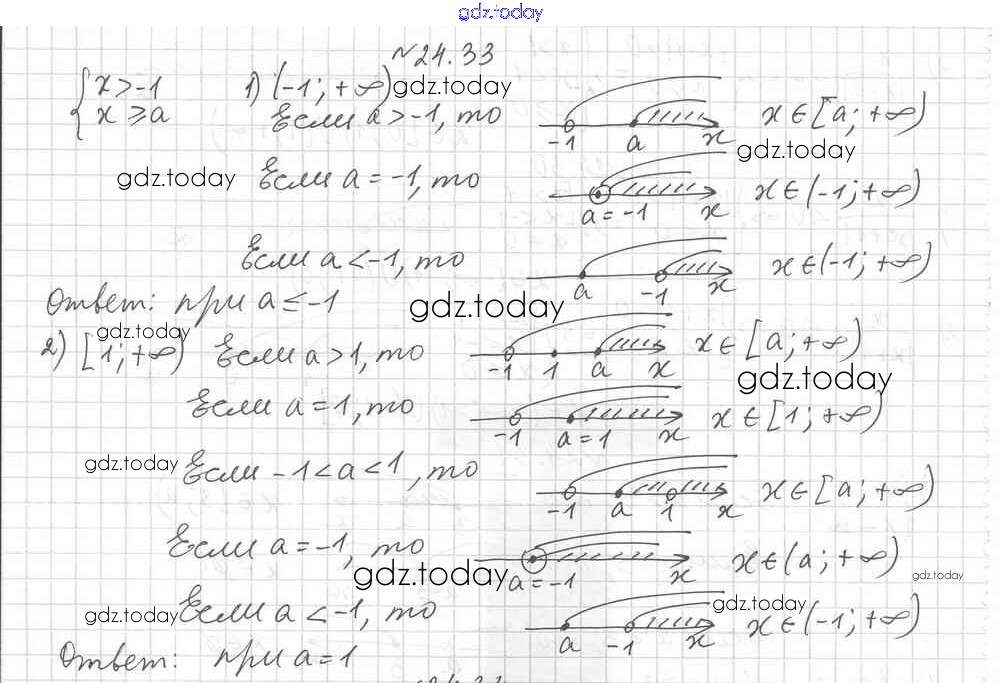 gdz.today
№24.33
{ x > -1 1) (-1; +∞) gdz.today
x ≥ a Если a > -1, то -1 a x x ∈ [a; +∞)
gdz.today
gdz.today Если a = -1, то a = -1 x x ∈ (-1; +∞)
Если a < -1, то a -1 x x ∈ (-1; +∞)
Ответ: при a ≤ -1 gdz.today
gdz.today
2) [1; +∞) Если a > 1, то -1 1 a x x ∈ [a; +∞)
gdz.today
Если a = 1, то -1 a = 1 x x ∈ [1; +∞)
gdz.today Если -1 < a < 1, то -1 a 1 x x ∈ [a; +∞)
Если a = -1, то a = -1 x x ∈ (a; +∞)
gdz.today gdz.today
gdz.today Если a < -1, то a -1 x gdz.today x ∈ (-1; +∞)
Ответ: при a = 1